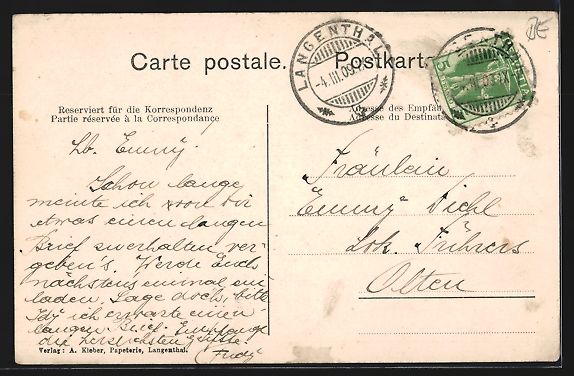 Carte postale. Postkarte.
LANGENTHAL
-4.III.09.
HELVETIA
5
Reserviert für die Korrespondenz
Partie réservée à la Correspondance
Adresse des Empfän
Adresse du Destinata
Lb. Emmy.
Schon lange
meinte ich von dir
etwas einen langen
Brief zu erhalten ver-
geben's. Werde Euch
nächstens einmal ein
laden. Sage doch, bitte
ich erwarte einen
langen Brief. Empfange
die herzlichsten Grüsse
Fräulein
Emmy
Lok. Führers
Olten
Verlag: A. Kleber, Papeterie, Langenthal.
BE